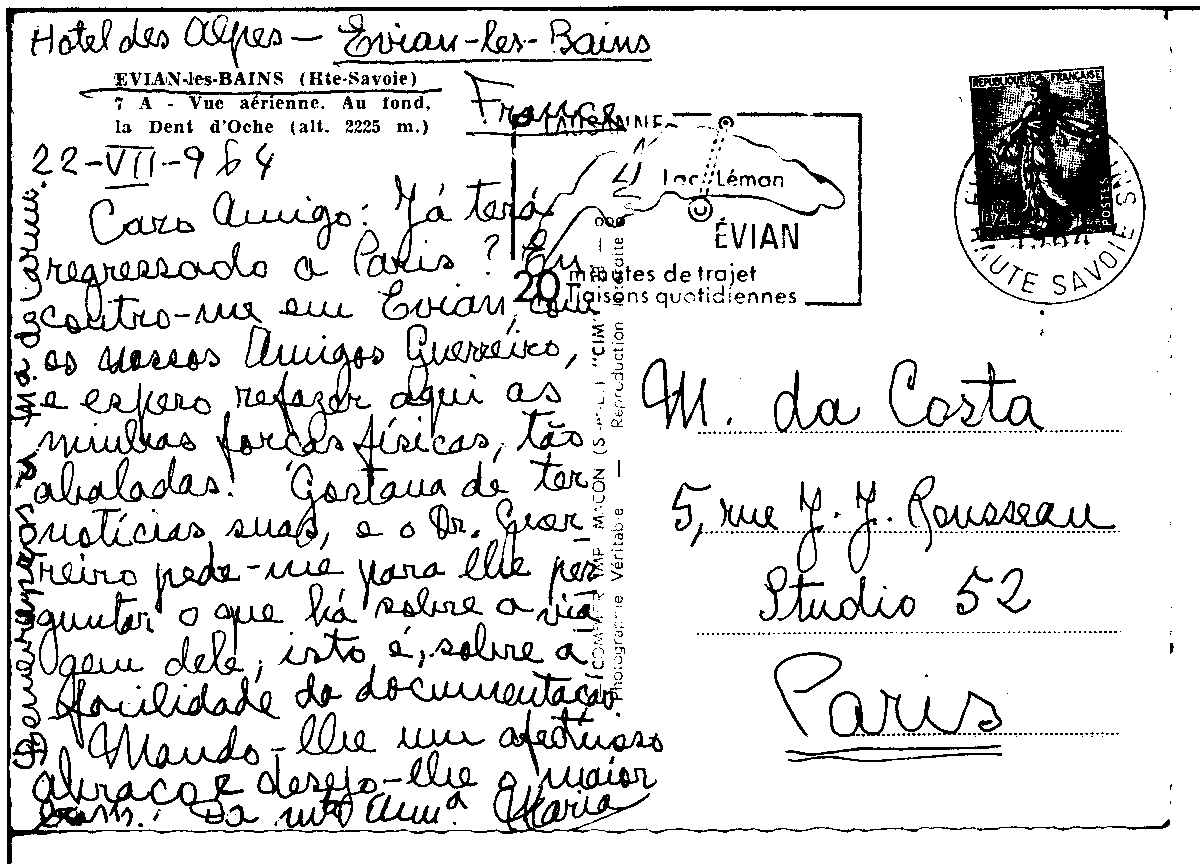 Hotel des Alpes — Evian-les-Bains
France
EVIAN-les-BAINS (Hte-Savoie)
7 A - Vue aérienne. Au fond,
la Dent d'Oche (alt. 2225 m.)
22-VII-964
Caro Amigo: Já terá
regressado a Paris? En
contro-me em Evian, com
os nossos Amigos Guerreiro,
e espero refazer aqui as
minhas forças físicas, tão
abaladas. Gostava de ter
notícias suas, e o Dr. Guer
reiro pede-me para lhe per
guntar o que há sobre a via
gem dele, isto é, sobre a
facilidade da documentação.
Mando-lhe um afectuoso
abraço e desejo-lhe o maior
bem. Da mtº Amª Maria
LAUSANNE
Lac Léman
ÉVIAN
20 minutes de trajet
liaisons quotidiennes
REPUBLIQUE FRANÇAISE
POSTES
HAUTE SAVOIE
COMBIER IMP. MACON "CIM"
Photographie Véritable — Reproduction interdite
M. da Costa
5, rue J. J. Rousseau
Studio 52
Paris